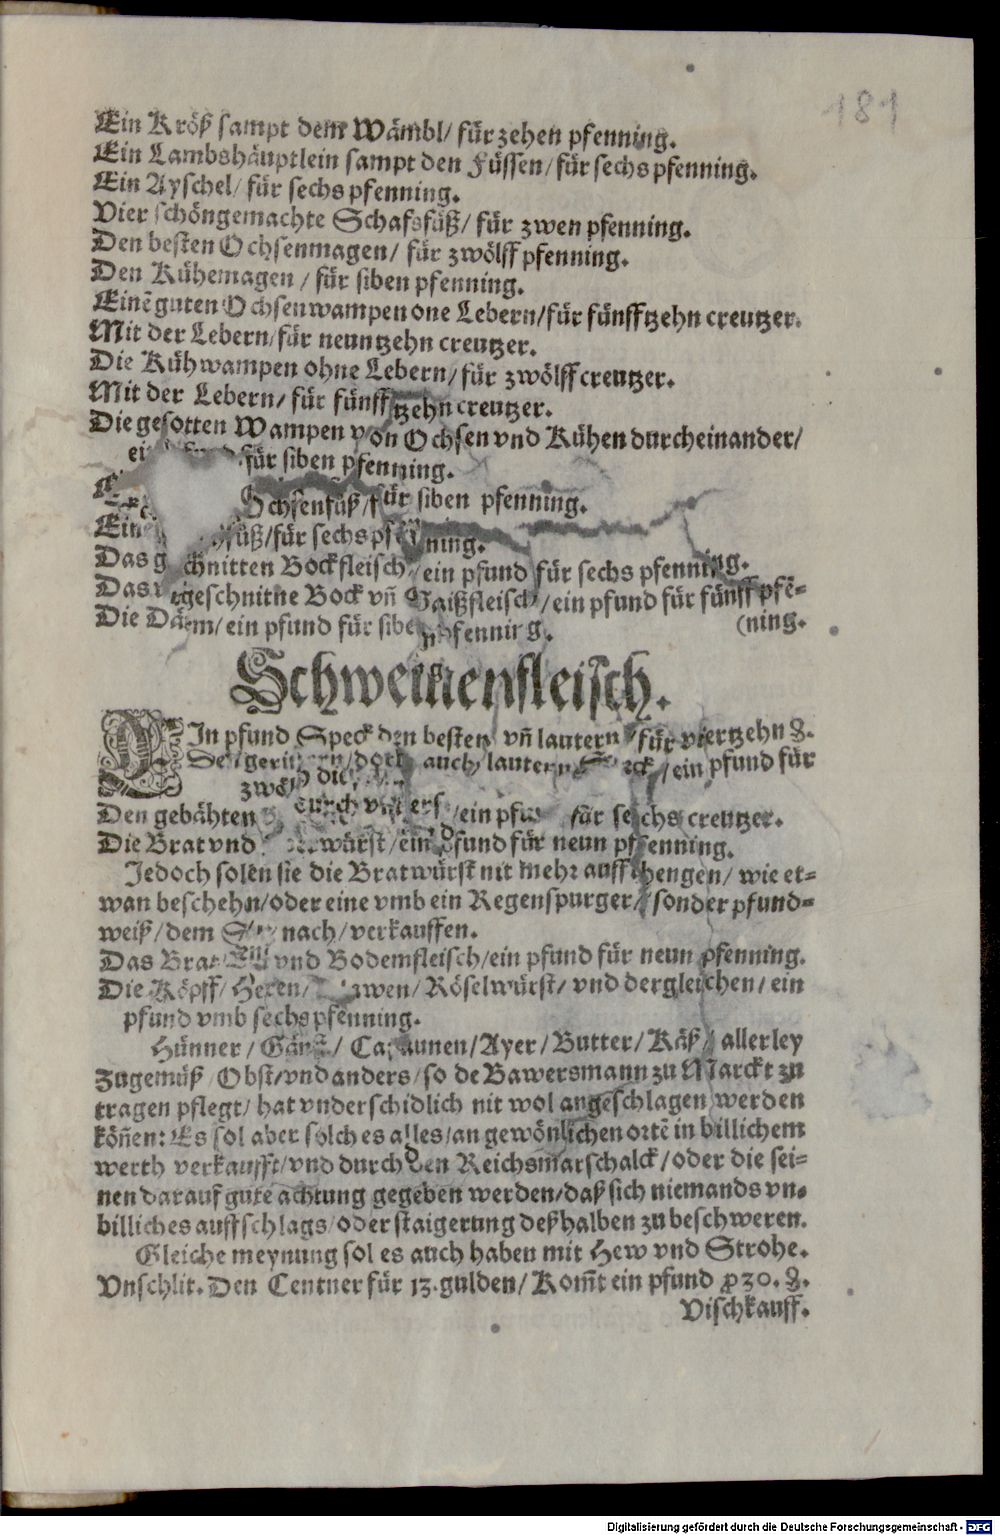 181
Ein Kröß sampt dem Wämbl/ für zehen pfenning.
Ein Lambshäuptlein sampt den Füssen/ für sechs pfenning.
Ein Ayschel/ für sechs pfenning.
Vier schöngemachte Schafsfüß/ für zwen pfenning.
Den besten Ochsenmagen/ für zwölff pfenning.
Den Kühemagen/ für siben pfenning.
Einē guten Ochsenwampen one Lebern/ für fünfftzehn creutzer.
Mit der Lebern/ für neuntzehn creutzer.
Die Kühwampen ohne Lebern/ für zwölff creutzer.
Mit der Lebern/ für fünfftzehn creutzer.
Die gesotten Wampen von Ochsen vnd Kühen durcheinander/
für siben pfenning.
Ochsenfüß/ für siben pfenning.
Ein füß/ für sechs pfenning.
Das g chnitten Bockfleisch/ ein pfund für sechs pfenning.
Das geschnitne Bock vñ Gaißfleisch/ ein pfund für fünff pfē-
Die Därm/ ein pfund für siben pfenning. (ning.
Schweinenfleisch.
EIn pfund Speck den besten vñ lautern für viertzehn ₰.
Den geringern/ doch auch lautern Speck/ ein pfund für
zwölff die
Den gebähten durch ein pfund für sechs creutzer.
Die Brat vnd würst/ ein pfund für neun pfenning.
Jedoch solen sie die Bratwürst nit mehr auffhengen/ wie et-
wan beschehn/ oder eine vmb ein Regenspurger/ sonder pfund-
weiß/ dem nach/ verkauffen.
Das vnd Bodemfleisch/ ein pfund für neun pfenning.
Die Köpff/ Hexen/ Röselwürst/ vnd dergleichen/ ein
pfund vmb sechs pfenning.
Hünner/ Gänß/ Capaunen/ Ayer/ Butter/ Käß/ allerley
Zugemüß/ Obst/ vnd anders/ so de Bawersmann zu Marckt zu
tragen pflegt/ hat vnderschidlich nit wol angeschlagen werden
köñen: Es sol aber solches alles/ an gewönlichen ortē in billichem
werth verkaufft/ vnd durch den Reichsmarschalck/ oder die sei-
nen darauf gute achtung gegeben werden/ daß sich niemands vn-
billiches auffschlags/ oder staigerung deßhalben zu beschweren.
Gleiche meynung sol es auch haben mit Hew vnd Strohe.
Vnschlit. Den Centner für 13. gulden/ Kom̃t ein pfund ꝓ 30. ₰.
Vischkauff.
Digitalisierung gefördert durch die Deutsche Forschungsgemeinschaft - DFG